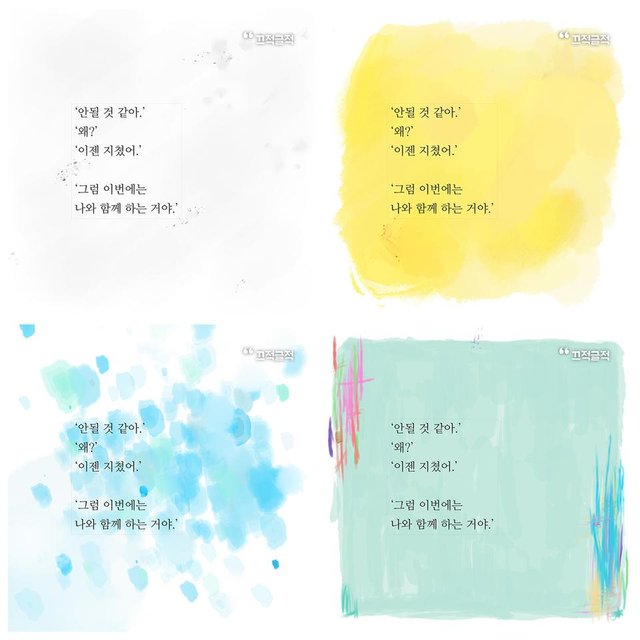 ❝ 끄적글적
‘안될 것 같아.’
‘왜?’
‘이젠 지쳤어.’
‘그럼 이번에는
나와 함께 하는 거야.’
❝ 끄적글적
‘안될 것 같아.’
‘왜?’
‘이젠 지쳤어.’
‘그럼 이번에는
나와 함께 하는 거야.’
❝ 끄적글적
‘안될 것 같아.’
‘왜?’
‘이젠 지쳤어.’
‘그럼 이번에는
나와 함께 하는 거야.’
❝ 끄적글적
‘안될 것 같아.’
‘왜?’
‘이젠 지쳤어.’
‘그럼 이번에는
나와 함께 하는 거야.’